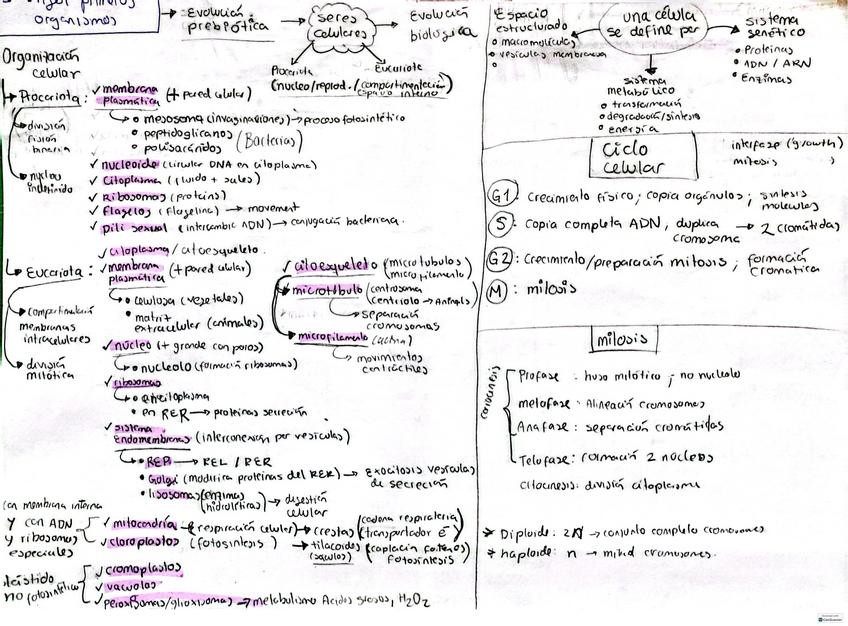 organismos
→ Evolución prebiótica →
seres celulares
→ Evolución biológica
Procariota
Eucariota
(nucleo/reprod./compartimentación espacio interno)
Organización celular
→ Procariota: ✓ membrana plasmática (+ pared celular)
→ división fisión binaria
→ núcleo indefinido
→ o mesosoma (invaginaciones) → proceso fotosintético
• peptidoglicanos
• polisacáridos (Bacterias)
✓ nucleoide (circular DNA en citoplasma)
✓ citoplasma (fluido + sales)
✓ Ribosomas (proteins)
✓ Flagelos (flagelina) → movement
✓ pili sexual (intercambio ADN) → conjugación bacteriana.
✓ citoplasma / citoesqueleto
→ Eucariota: ✓ membrana plasmática (+ pared celular)
→ compartimentación membranas intracelulares
→ división mitótica
→ o celulosa (vegetales)
• matriz extracelular (animales)
✓ núcleo (+ grande con poros)
→ nucleolo (formación ribosomas)
✓ ribosomas
→ o citoplasma
o en RER → proteinas secreción
✓ sistema endomembranas (interconexión por vesículas)
→ • REP → REL / RER
• Golgi (modifica proteinas del RER) → exocitosis vesículas de secreción
• lisosomas (enzimas hidrolíticas) → digestión celular
✓ citoesqueleto (microtubulos / microfilamento)
→ microtúbulo (centrosoma centriolo → Animals)
→ separación cromosomas
→ microfilamento (actina)
→ movimientos contráctiles
con membrana interna y con ADN y ribosomas especiales
✓ mitocondria → (respiración celular) → crestas (cadena respiratoria) (transportador e⁻)
✓ cloroplastos (fotosíntesis) → tilacoides (sáculos) (captación fotones) fotosíntesis
plástido no fotosintético
✓ cromoplastos
✓ vacuolas
✓ peroxisomas/glioxisomas → metabolismo Acidos grasos, H₂O₂
una célula se define por
Espacio estructurado
o macromoléculas
o vesículas membranosa
o
sistema metabólico
o transformación
o degradación/síntesis
o energía
sistema genético
o Proteinas
o ADN / ARN
o Enzimas
Ciclo celular
interfase (growth)
mitosis
G1: Crecimiento físico; copia orgánulos; síntesis moleculas
S: Copia completa ADN, duplica cromosoma → 2 cromátidas
G2: Crecimiento/preparación mitosis; formación cromatica
M: mitosis
mitosis
cariocinesis
Profase: huso mitótico; no nucleolo
metafase: Alineación cromosomas
Anafase: separación cromátidas
Telofase: formación 2 núcleos
citocinesis: división citoplasma
* Diploide: 2N → conjunto completo cromosomas
* haploide: n → mitad cromosomas.
CamScanner